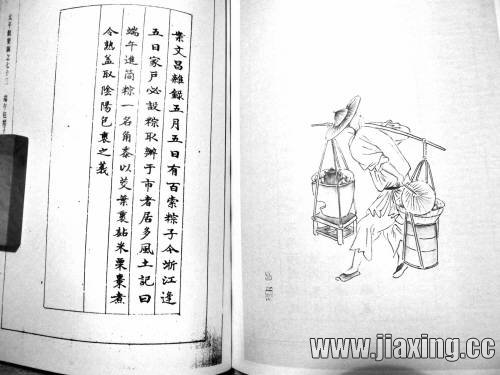 案文昌雜錄五月五日有百索粽子今浙江逢
五日家戶必設粽取辦于市者居多風土記曰
端午進筒粽一名角黍以芰葉裹黏米粟棗煮
令熟蓋取陰陽包裹之義
太平歡樂圖之七十三 端午
www.jiaxing.cc